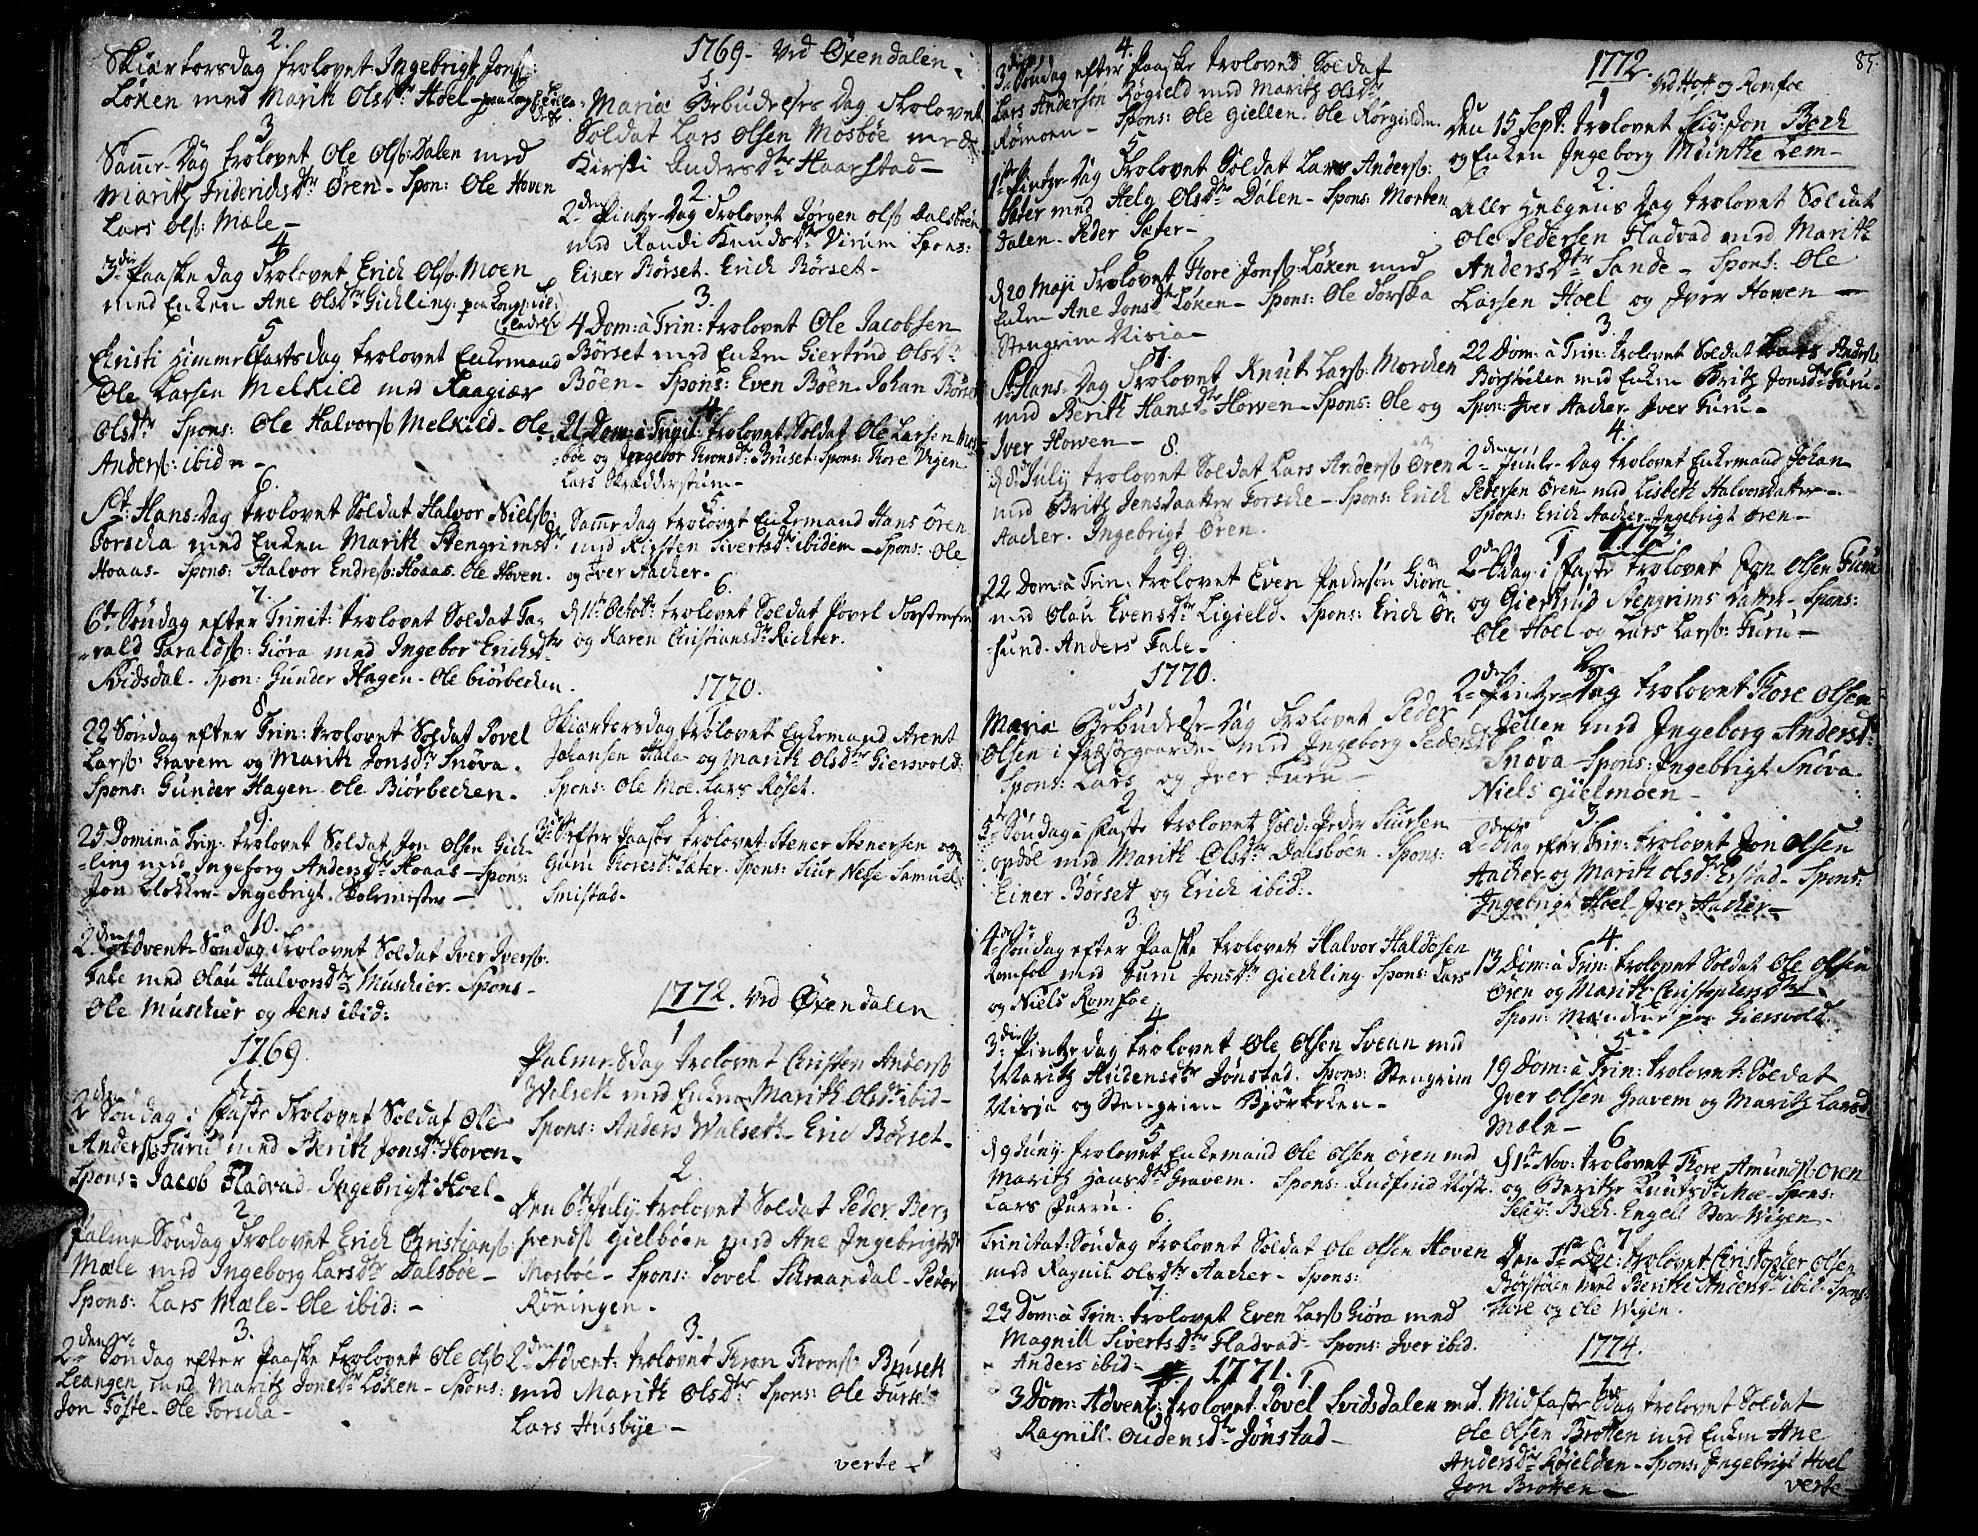 2.
Skiærtorsdag trolovet Ingebrigt Jonsß:
Løken med Marith Olsdtr Hoel
3.
Samme Dag trolovet Ole Olsß: Dalen med
Maritz Friderichsdtr Ören - Spon: Ole Hoven
Lars Olsß: Mæle -
4
3die Paaske Dag Trolovet Erich Olsß: Moen
med Enken Ane Olsdtr Gickling.
5
Christi Himmelfarts dag trolovet Enkemand
Ole Larsen Melkild med Raagiær
Olsdtr Spons: Ole Halvorsß Melkild - Ole
Andersß: ibid -
6.
St: Hans-Dag trolovet Soldat Halvor Nielsß:
Torscha med Enken Marith Stengrimsdtr
Hoaas - Spons: Halvor Endresß: Hoaas. Ole Hoven.
7.
6te Søndag efter Trinit: trolovet Soldat Ta-
rald Taraldsß: Giöra med Ingebor Erichsdtr
Svidsdal - Spon: Gunder Hagen - Ole Biörbechen.
8
22 Søndag efter Trin: trolovet Soldat Povel
Larsß: Gravem og Marith Jonsdtr Snöva.
Spons: Gunder Hagen - Ole Biörbechen.
9.
25 Domin: à Trin: trolovet Soldat Jon Olsen Gick-
ling med Ingeborg Andersdtr Hoaas - Spons:
Jon Klokker - Ingebrigt Skolemester -
10.
2den Advent-Søndag Trolovet Soldat Iver Iversß:
Fale med Olau Halvorsdtr Muschier - Spons -
Ole Muschier og Jens ibid:
1769.
1.
2den Søndag i Faste Trolovet Soldat Ole
Andersß: Furu med Berith Jonsdtr Hoven -
Spons: Jacob Fladvad - Ingebrigt Hoel -
2.
Palme Søndag Trolovet Erich Christiansß:
Mæle med Ingeborg Larsdtr Dalsböe -
Spons: Lars Mæle - Ole ibid: -
3.
2den Søndag efter Paaske trolovet Ole Olsß
Leangen med Maritz Jonsdtr Löken - Spons:
Jon Töste - Ole Torscha -
1769 - ved Öxendalen -
1.
Mariæ Bebudelses Dag Trolovet
Soldat Lars Olsen Mosböe med
Kirsti Andersdtr Haarstad -
2.
2den Pintze-Dag Trolovet Jörgen Olsß Dalsböen
med Randi Knudsdtr Virum Spons:
Einer Börset - Erich Börset -
3.
4 Dom: à Trin: trolovet Ole Jacobsen
Börset med Enken Giertrud Olsdtr
Böen - Spons: Even Böen - Johan Börset
4.
21 Dom: à Trinit: trolovet Soldat Ole Larsen Mos-
böe og Ingebor Tronsdtr Bruset. Spons: Tore Vigen
Lars Skrædderstuen -
5.
Samme dag trolovet Enkemand Hans Ören
med Kirsten Sivertsdtr ibidem - Spons: Ole
og Iver Aacker.
6.
d 11te Octobr: trolovet Soldat Povel Torstensen
og Karen Christiansdtr Richter.
1770.
1
Skiærtorsdag trolovet Enkemand Arent
Johansen Hala - og Marith Olsdtr Giersvold
Spons: Ole Moe. Lars Röset.
2.
3die S. efter Paaske trolovet Stener Stenersen og
Guru Toresdtr Sæter. Spons: Siur Nesje. Samuel
Smistad.
1772. ved Öxendalen
1
Palme-Sdag trolovet Christen Andersß
Walseth med Enken Marith Olsdtr ibid -
Spons: Anders Walseth - Eric Börset -
2
Den 6te July trolovet Soldat Peder Ber-
svendsß Gielböen med Ane Ingebrigtsdtr
Mosböe - Spons: Povel Schrandal - Peder
Rönningen -
3.
2den Advent: trolovet Tron Tronsß Bruseth
med Marith Olsdtr Spons: Ole Furu
Lars Husbye -
verte -
4.
3die Søndag efter Paaske trolovet Soldat
Lars Andersön Rögield med Maritz Olsdtr
Römoen - Spons: Ole Giellen. Ole Rörgield.
5
1ste Pintze-Dag Trolovet Soldat Lars Andersß:
Sæter med Helg Olsdtr Dalen - Spons: Morten
Dalen - Peder Sæter -
6
d 20 Maji Trolovet Tore Jonsß: Löken med
Enken Ane Jonsdtr Löken - Spons: Ole Torska
Stengrim Nisia -
7.
St Hans-Dag Trolovet Knut Larsß: Morchen
med Berith Hansdtr Howen - Spons: Ole og
Iver Howen -
8.
d 8de July trolovet Soldat Lars Andersß Ören
med Brith Jensdaatter Torsche - Spons: Erich
Aacker. Ingebrigt Ören.
9
22 Dom: à Trin: trolovet Even Pedersön Giöra
med Olau Evensdtr Ligield. Spons: Erich Ör-
sund. Anders Fale -
1770.
1
Mariæ Bebudelse-Dag Trolovet Peder
Olsen i Præstgaarden med Ingeborg Pedersdtr
Spons: Lars og Iver Furu -
2
3die Søndag i Faste trolovet Sold: Peder Siursen
Opdöl med Marith Olsdtr Dalsböen. Spons:
Einer Börsett og Erich ibid:
3
4de Søndag efter Paaske trolovet Halvor Haldosen
Romfoe med Guru Jonsdtr Gickling. Spons: Lars
og Niels Romfoe
4
3die Pintze dag trolovet Ole Olsen Svean med
Maritz Audensdtr Jönstad. Spons: Stengrim
Nisja og Stengrim Bjørkelien -
5
d 9 Juny trolovet Enkemand Ole Olsen Ören med
Maritz Hansdtr Gravem. Spons: Gudfind Röste.
Lars Furru.
6.
Trinitat: Søndag trolovet Soldat Ole Olsen Hoven
med Ragnil Olsdtr Aacker - Spons:
7.
23 Dom: à Trin: trolovet Even Larsß Giöra med
Magnill Sivertsdtr Fladvad - Spons: Iver ibid.
Anders ibid -
1771. 1
3 Dom: Advent: trolovet Povel Svidsdalen med
Ragnill Oudensdtr Jönstad -
85.
1772.
Ved Hof og Romfoe
1
Den 15 Sept: trolovet Sig: Jon Bech
og Enken Ingeborg Munthe Lem -
2.
Alle Helgens Dag trolovet Soldat
Ole Pedersen Fladvad med Marith
Andersdtr Sande - Spons: Ole
Larsen Hoel og Iver Howen -
3.
22 Dom: à Trin: trolovet Soldat Lars Andersß
Börstölen med Enken Brith Jonsdtr Furu -
Spon: Iver Aacker - Iver Furu -
4.
2den Juule-Dag trolovet Enkemand Johan
Petersen Ören med Lisbeth Halvorsdatter -
Spons: Erich Aacker. Ingebrigt Ören -
1 1773.
2den Sdag i Faste trolovet Jon Olsen Furu
og Giertrud Stengrims Datter - Spons:
Ole Hoel og Lars Larsß: Furu -
2.
2den Pintze-Dag trolovet Tore Olsen
Jellen med Ingeborg Andersdtr
Snöva - Spons: Ingebrigt Snöva.
Niels Gielmoen -
3.
2den Sdag efter Trin: trolovet Jon Olsen
Aacker og Marith Olsdtr Erstad - Spons:
Ingebrigt Hoel - Iver Aacker -
4.
13 Dom: à Trin: trolovet Soldat Ole Olsen
Ören og Marith Christophersdtr.
Spon: Mændene paa Giersvold.
5.
19 Dom: à Trin: trolovet Soldat
Iver Olsen Gravem og Maritz Larsd
Mæle -
6
d 1te Nov: trolovet Tore Amundsß Ören
og Berithe Knutsdtr Moe - Spons:
Bech. Engel Stor-Wigen -
7
Den 1ste Dec: trolovet Christopher Olsen
Börstölen med Berithe Andersdtr ibid. Spons:
Tore og Ole Wigen.
1774.
1
Midfaste Sdag trolovet Soldat
Ole Olsen Brotten med Enken Ane
Andersdtr Röielden - Spons: Ingebrigt Hoel
Jon Brotten -
verte -